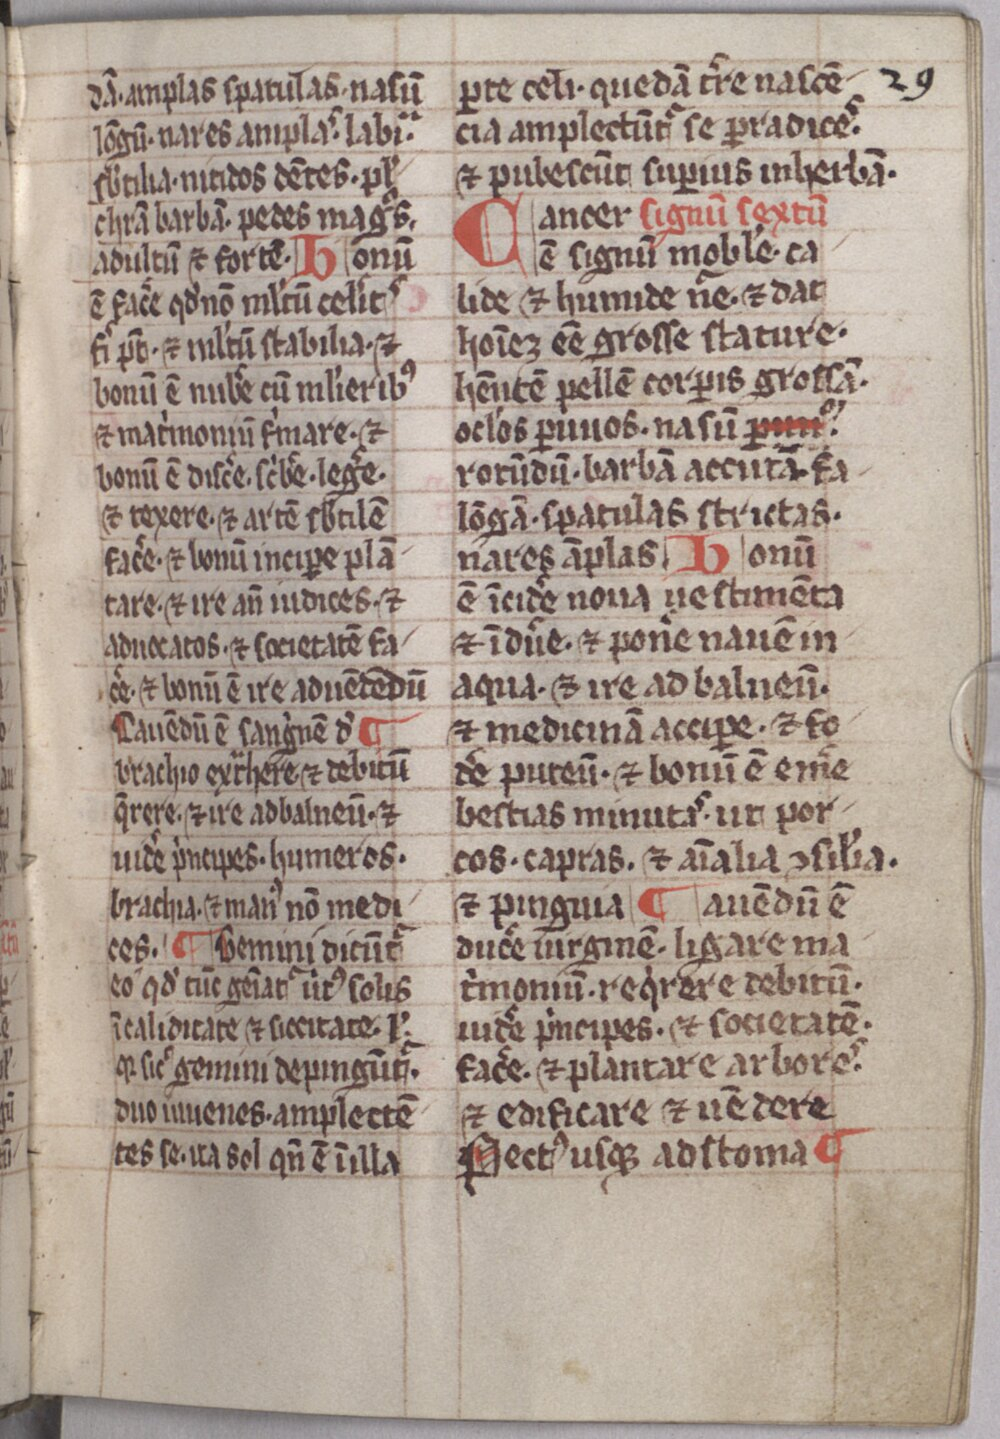 dā. amplas spatulas. nasū
lōgū. nares amplas. labia
sbtilia. nitidos dētes. pl
chrā barbā. pedes magos.
adultū ⁊ fortē. Bonū
ē facē qd nō mltū celit
⁊ mltū stabilia. ⁊
bonū ē nubē cū mlieribꝰ
⁊ matimoniū fimare. ⁊
bonū ē discē. scibē. legē.
⁊ texere. ⁊ artē sbtilē
facē. ⁊ bonū incipe plā
tare. ⁊ ire añ iudices. ⁊
aduocatos. ⁊ societatē fa
cē. ⁊ bonū ē ire aduētēdū
Cauēdū ē sangnē d ¶
brachio exthere. ⁊ debitū
qrere. ⁊ ire ad balneū. ⁊
uidē pncipes. humeros.
brachia. ⁊ manꝰ nō medi
ces. ¶ Gemini dicūt
eo qd tūc geīat uirtꝰ solis
ī caliditate ⁊ siccitate. l.
qꝛ sicꝰ gemini depingūt.
duo iuuenes. amplectē
tes se. ita sol qn̄ ē ī illa
pte celi. quedā tre nascē
cia amplectūt se p radices.
⁊ pubescūt supius in herbā.
Cancer signū sextū
ē signū moble. ca
lide ⁊ humide nē. ⁊ dat
hoīeꝫ eē grosse stature.
hēntē pellē corpis grossā.
oclos puuos. nasū
rotūdū. barbā accutā. fa
lōgā. spatulas strictas.
nares āplas Bonū
ē īcidē noua uestimēta
⁊ īduē. ⁊ ponē nauē in
aqua. ⁊ ire ad balneū.
⁊ medicinā accipe. ⁊ fo
dē puteū. ⁊ bonū ē emē
bestias minutas. ut por
cos. capras. ⁊ aīalia ꝯsilia.
⁊ pinguia ¶ Cauēdū ē
ducē uirginē. ligare ma
timoniū. reqrere debitū.
uidē pncipes. ⁊ societatē.
facē. ⁊ plantare arbores.
⁊ edificare ⁊ uēdere
Pectꝰ usqꝫ ad stoma ¶
29